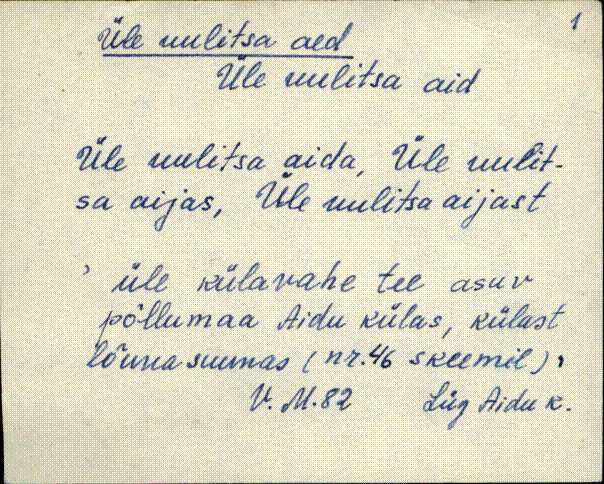 1
Üle uulitsa aed
Üle uulitsa aid
Üle uulitsa aida, Üle uulit-
sa aijas, Üle uulitsa aijast
' üle külavahe tee asuv
põllumaa Aidu külas, külast
lõunasuunas (nr. 46 skeemil) '
V. M. 82 Lüg Aidu k.